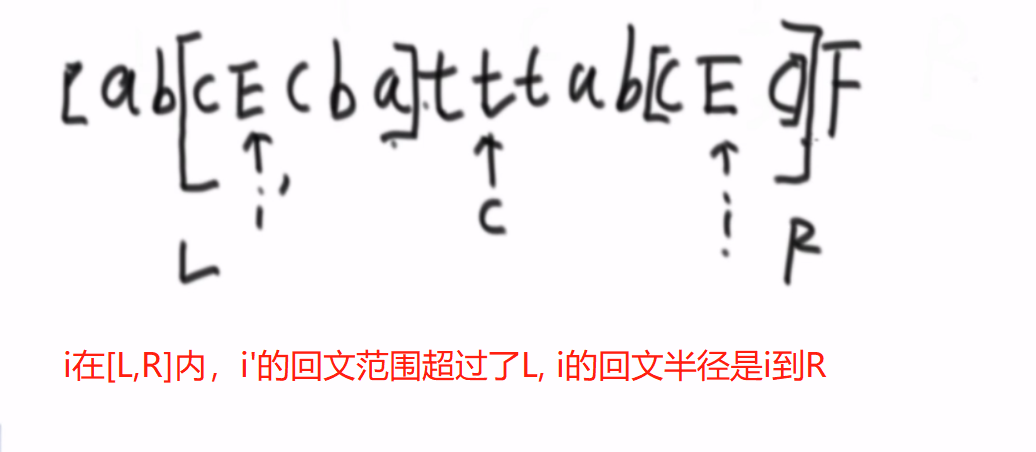 [ab[cEcba]tttab[cEc]]F
i' c i
L R
i在[L,R]内，i'的回文范围超过了L, i的回文半径是i到R